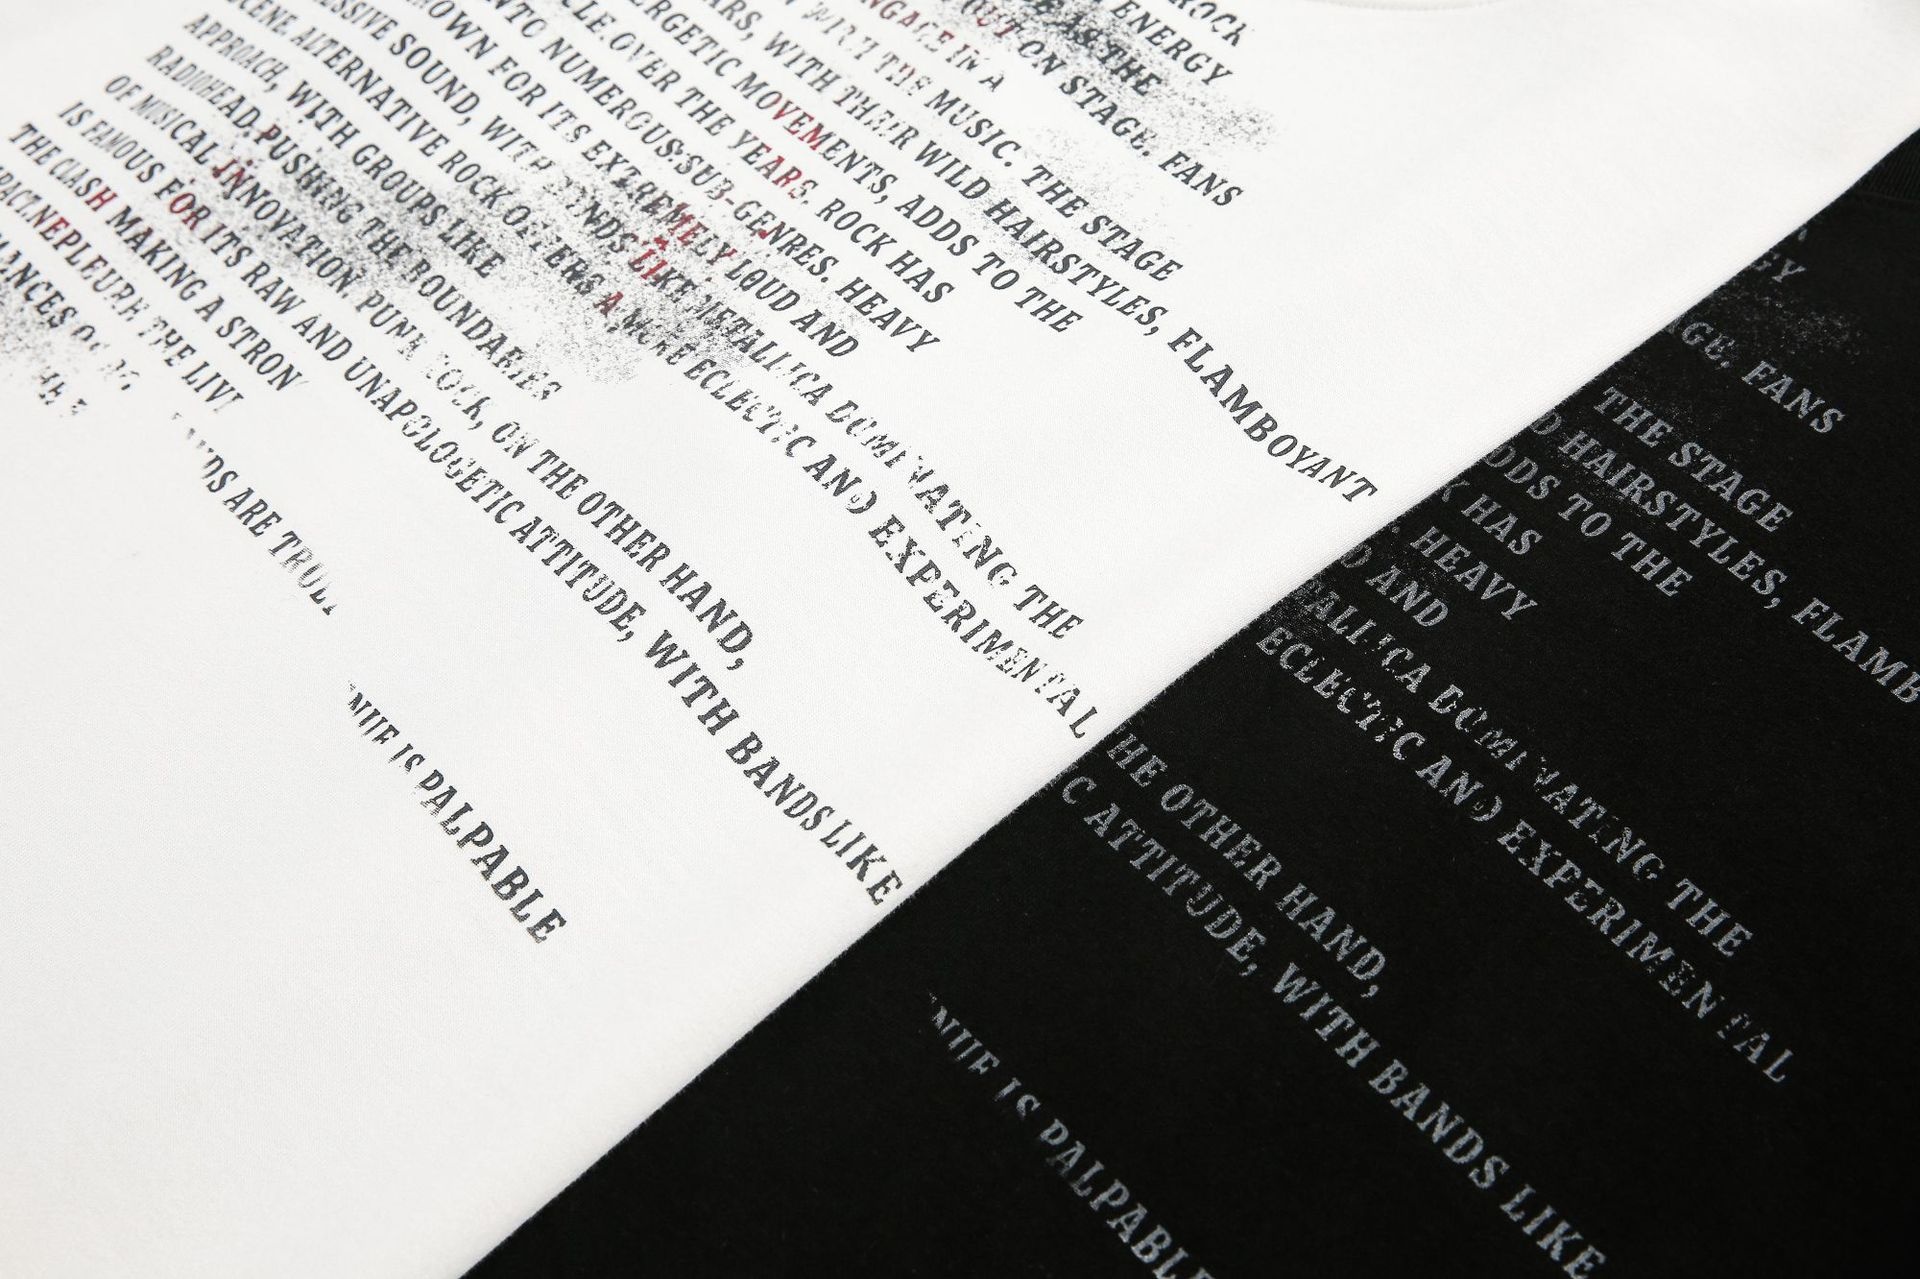 ROCK
ENERGY
AS THE
OUT ON STAGE. FANS
ENGAGE IN A
WITH THE MUSIC. THE STAGE
WITH THEIR WILD HAIRSTYLES, FLAMBOYANT
ENERGETIC MOVEMENTS, ADDS TO THE
OVER THE YEARS. ROCK HAS
INTO NUMEROUS SUB-GENRES. HEAVY
KNOWN FOR ITS EXTREMELY LOUD AND
SOUND, WITH LIKE METALLICA DOMINATING THE
ALTERNATIVE ROCK OFFERS A MORE ECLECTIC AND EXPERIMENTAL
APPROACH, WITH GROUPS LIKE
RADIOHEAD, PUSHING THE BOUNDARIES
OF MUSICAL INNOVATION. PUNK ROCK, ON THE OTHER HAND,
IS FAMOUS FOR ITS RAW AND UNAPOLOGETIC ATTITUDE, WITH BANDS LIKE
THE CLASH MAKING A STRON
THE LIVI
ARE
IS PALPABLE
GE. FANS
THE STAGE
HAIRSTYLES, FLAMB
DDS TO THE
K HAS
HEAVY
AND
TALLICA DOMINATING THE
ECLECTIC AND EXPERIMENTAL
HE OTHER HAND,
C ATTITUDE, WITH BANDS LIKE
IS PALPABLE